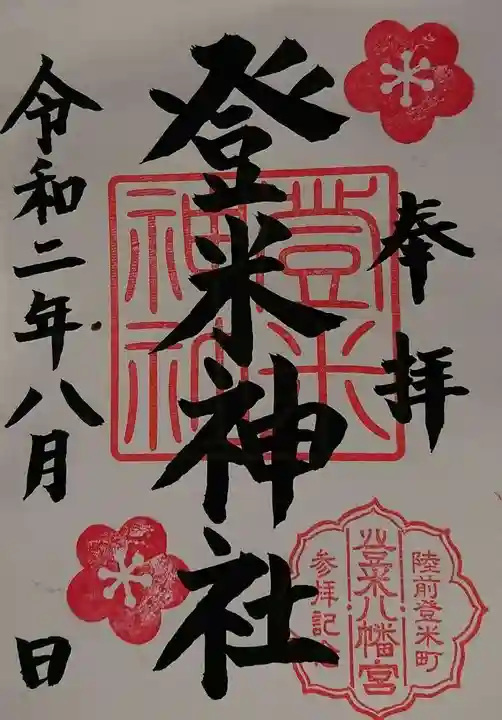 奉拝
登米神社
登米神社
令和二年八月 日
陸前登米町
登米八幡宮
参拝記念